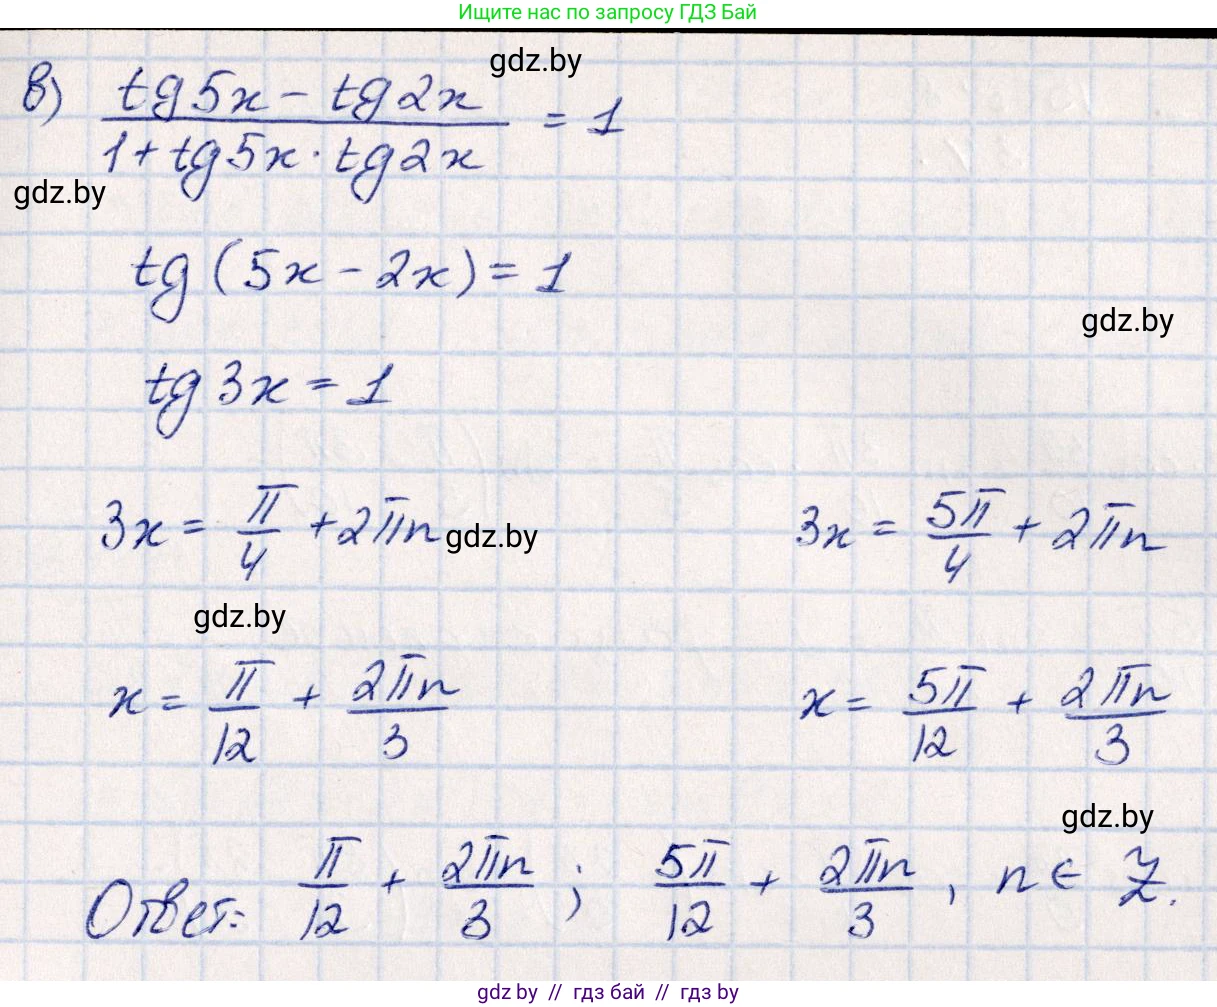 Ищите нас по запросу ГДЗ Бай
gdz.by
в) (tg5x - tg2x)/(1+tg5x·tg2x) = 1
gdz.by
tg(5x-2x)=1
gdz.by
tg3x=1
3x = π/4 + 2πn gdz.by 3x = 5π/4 + 2πn
gdz.by
x = π/12 + 2πn/3 x = 5π/12 + 2πn/3
gdz.by
Ответ: π/12 + 2πn/3 ; 5π/12 + 2πn/3 , n ∈ Z.
gdz.by // гдз бай // гдз by